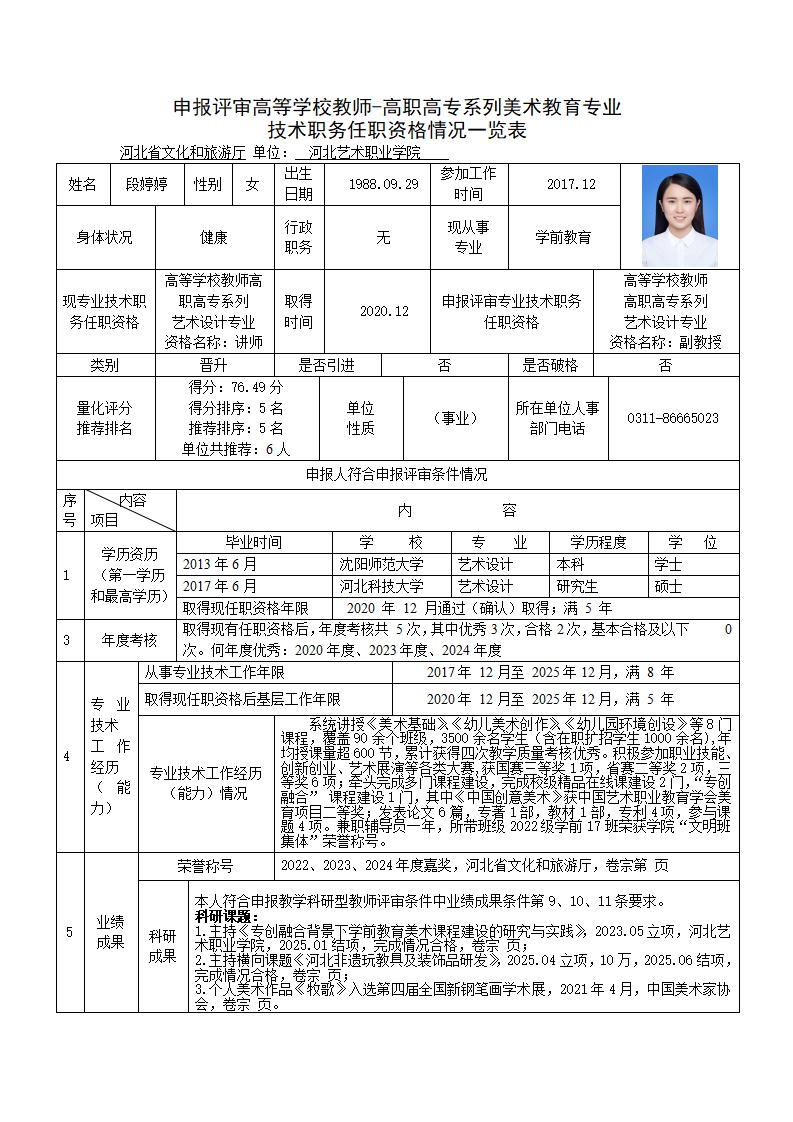 申报评审高等学校教师-高职高专系列美术教育专业
技术职务任职资格情况一览表
河北省文化和旅游厅 单位： 河北艺术职业学院
姓名 段婷婷 性别 女 出生日期 1988.09.29 参加工作时间 2017.12
身体状况 健康 行政职务 无 现从事专业 学前教育
现专业技术职务任职资格 高等学校教师高职高专系列艺术设计专业资格名称：讲师 取得时间 2020.12 申报评审专业技术职务任职资格 高等学校教师高职高专系列艺术设计专业资格名称：副教授
类别 晋升 是否引进 否 是否破格 否
量化评分推荐排名 得分：76.49 分 得分排序：5 名 推荐排序：5 名 单位共推荐：6 人 单位性质 （事业） 所在单位人事部门电话 0311-86665023
申报人符合申报评审条件情况
序号 内容 项目 内 容
1 学历资历（第一学历和最高学历） 毕业时间 学 校 专 业 学历程度 学 位
2013 年 6 月 沈阳师范大学 艺术设计 本科 学士
2017 年 6 月 河北科技大学 艺术设计 研究生 硕士
取得现任职资格年限 2020 年 12 月通过（确认）取得；满 5 年
3 年度考核 取得现有任职资格后，年度考核共 5 次，其中优秀 3 次，合格 2 次，基本合格及以下 0
次。何年度优秀：2020 年度、2023 年度、2024 年度
4 专业技术工作经历（能力） 从事专业技术工作年限 2017 年 12 月至 2025 年 12 月，满 8 年
取得现任职资格后基层工作年限 2020 年 12 月至 2025 年 12 月，满 5 年
专业技术工作经历（能力）情况
系统讲授《美术基础》、《幼儿美术创作》、《幼儿园环境创设》等 8 门
课程，覆盖 90 余个班级，3500 余名学生（含在职扩招学生 1000 余名），年
均授课量超 600 节，累计获得四次教学质量考核优秀。积极参加职业技能、
创新创业、艺术展演等各类大赛，获国赛二等奖 1 项，省赛二等奖 2 项，三
等奖 6 项；牵头完成多门课程建设，完成校级精品在线课建设 2 门，“专创
融合” 课程建设 1 门，其中《中国创意美术》获中国艺术职业教育学会美
育项目二等奖；发表论文 6 篇，专著 1 部，教材 1 部，专利 4 项，参与课
题 4 项。兼职辅导员一年，所带班级 2022 级学前 17 班荣获学院“文明班
集体”荣誉称号。
5 业绩成果 荣誉称号 2022、2023、2024 年度嘉奖，河北省文化和旅游厅，卷宗第 页
科研成果
本人符合申报教学科研型教师评审条件中业绩成果条件第 9、10、11 条要求。
科研课题：
1.主持《专创融合背景下学前教育美术课程建设的研究与实践》，2023.05 立项，河北艺
术职业学院，2025.01 结项，完成情况合格，卷宗 页；
2.主持横向课题《河北非遗玩教具及装饰品研发》，2025.04 立项，10 万，2025.06 结项，
完成情况合格，卷宗 页；
3.个人美术作品《牧歌》入选第四届全国新钢笔画学术展，2021 年 4 月，中国美术家协
会，卷宗 页。